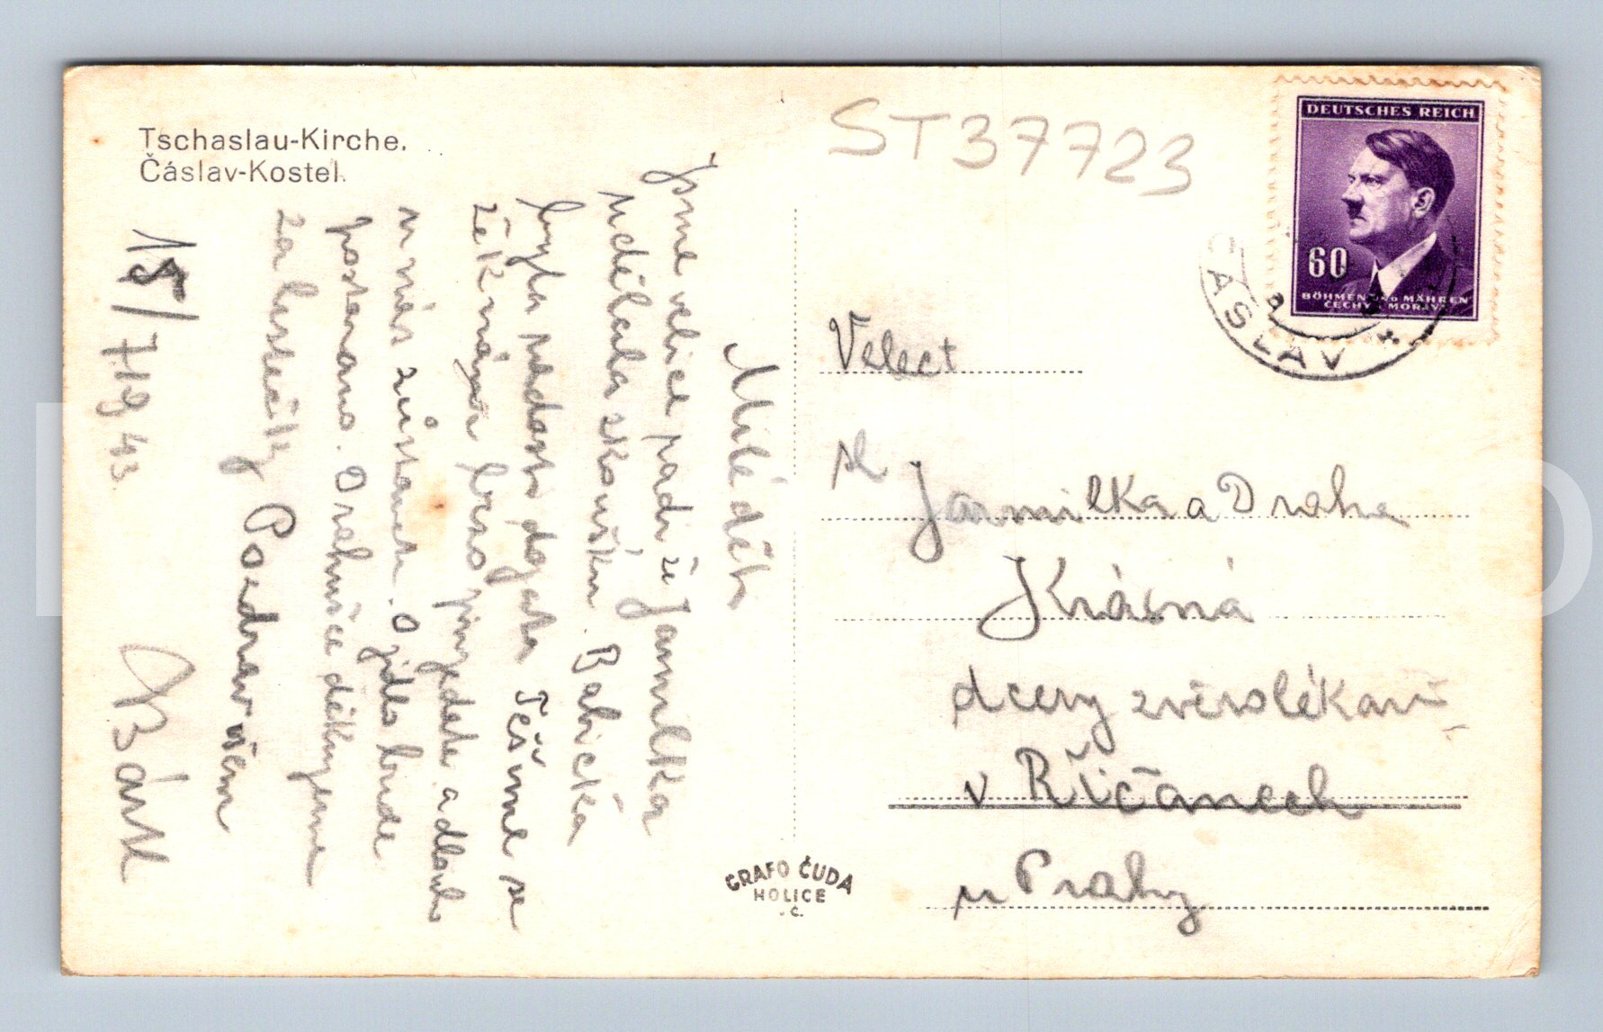 Tschaslau-Kirche.
Čáslav-Kostel.
ST37723
DEUTSCHES REICH
60
BÖHMEN UND MÄHREN
ČECHY A MORAVA
ČÁSLAV
15/7 19 43
Milé děti
jsme velice rádi že Jarmilka
udělala zkoušku. Babička
byla radostí dojata Těšíme se
že k nám brzo přijedete a dlouho
u nás zůstanete. O jídlo bude
postaráno. Drahušce děkujeme
za
Pozdrav všem
Velect
sl Jarmilka a Draha
Krásná
dcery zvěrolékaře
v Říčanech
u Prahy
GRAFO ČUDA
HOLICE